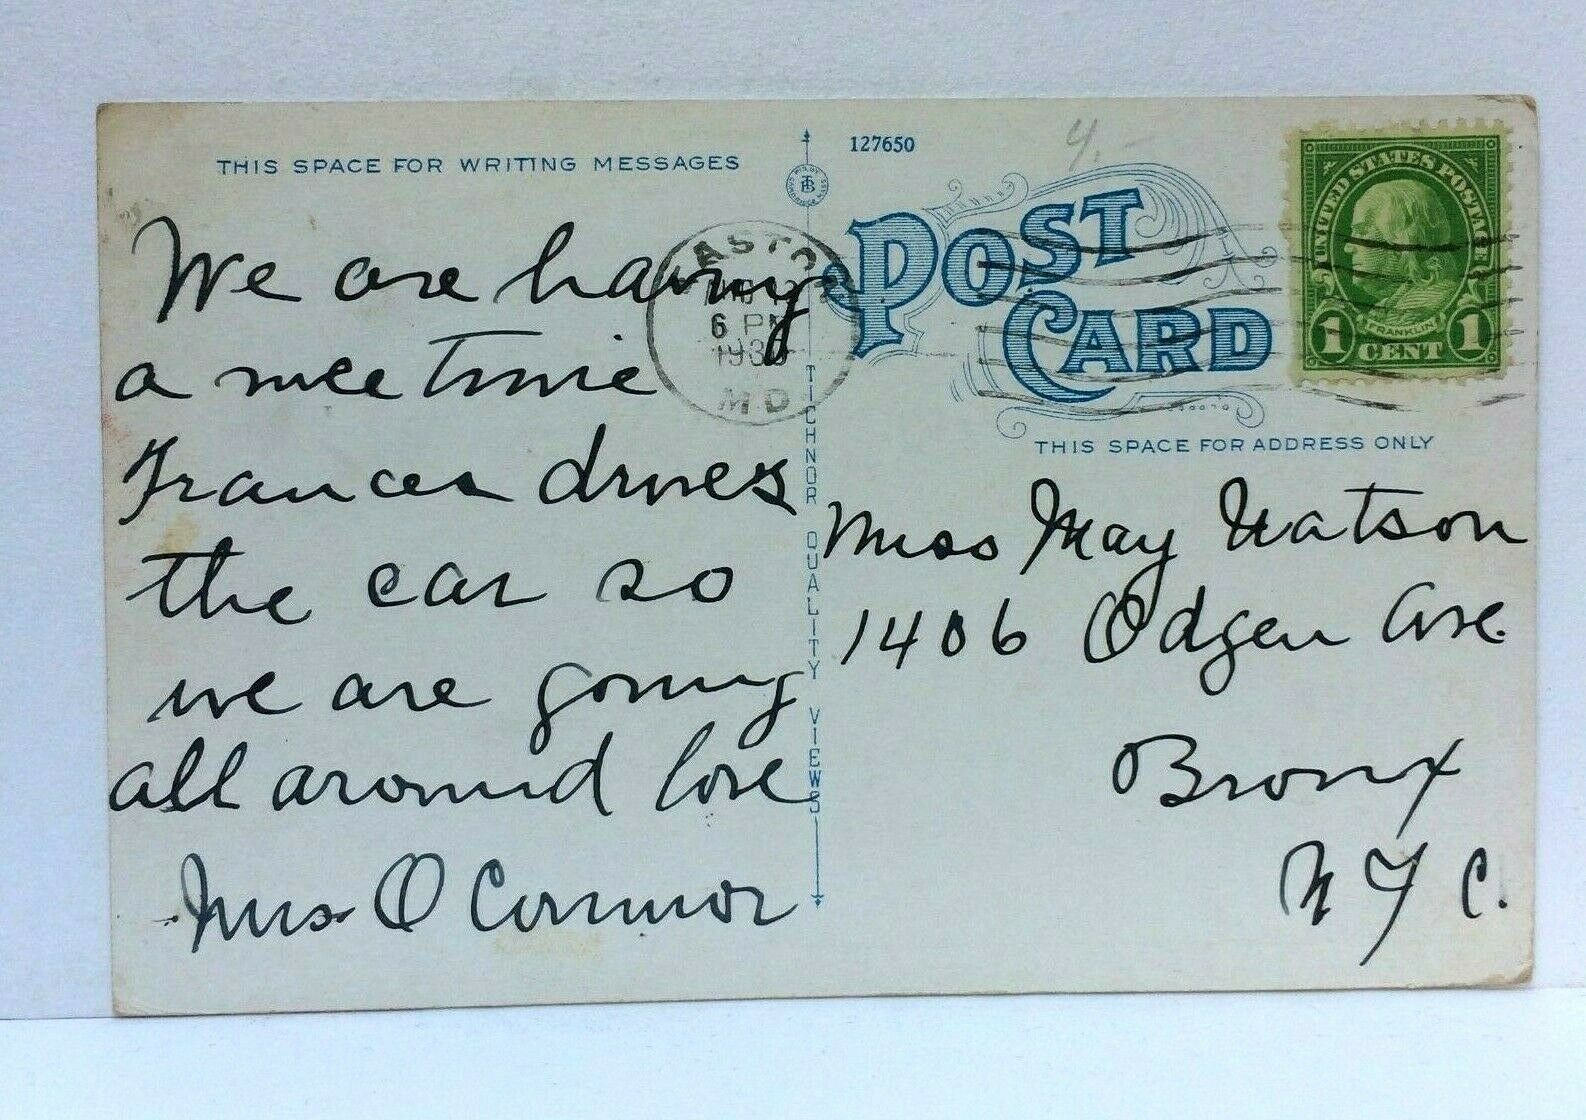 THIS SPACE FOR WRITING MESSAGES
We are having
a nice time
Frances drives
the car so
we are going
all around love
Mrs O Connor
EASTON
6 PM
MD
TICHNOR QUALITY VIEWS
127650
4.-
POST CARD
UNITED STATES POSTAGE
FRANKLIN
1 CENT 1
THIS SPACE FOR ADDRESS ONLY
Miss May Watson
1406 Odgen Ave.
Bronx
N Y C.